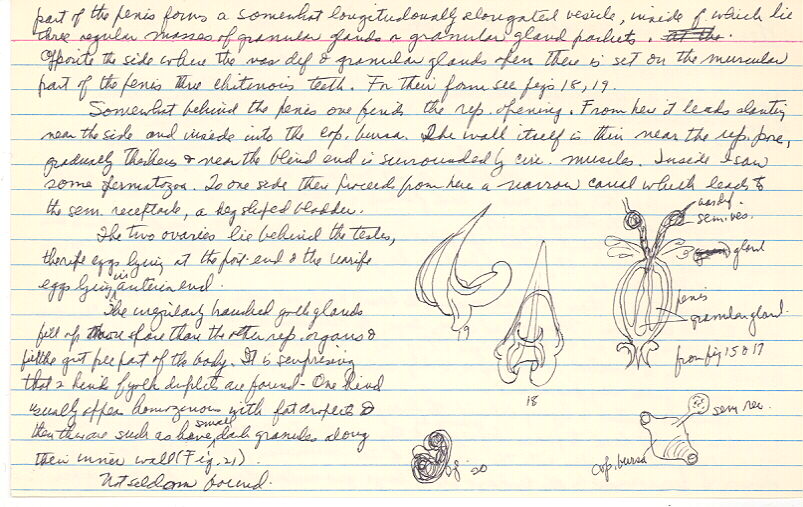 part of the penis forms a somewhat longitudonally elongated vesicle, inside of which lie
three regular masses of granular glands or granular gland pockets.
Opposite the side where the vas def & granular glands open there is set on the muscular
part of the penis three chitenois teeth. For their form see figs 18, 19.
Somewhat behind the penis one finds the rep. opening. From here it leads slanting
near the side and inside into the cop. bursa. The wall itself is thin near the rep. pore,
gradually thickens & near the blind end is surrounded by circ. muscles. Inside I saw
some spermatozoa. To one side then proceeds from here a narrow canal which leads to
the sem receptacle, a keg shaped bladder.
The two ovaries lie behind the testes,
the ripe eggs lying at the post. end & the unripe
eggs lying in anterior end.
The irregularly branched yolk glands
fill up more space than the other rep. organs &
fill the part of the body. It is surprising
that 2 kinds of yolk droplets are found - One kind
usually appear homogenous with fat droplets &
then there are such as have small dark granules along
their inner wall (Fig. 21).
Not seldom found.
19
18
vas def.
sem ves.
gland
penis
granular gland.
from fig 15 & 17
20
sem rec.
cop. bursa